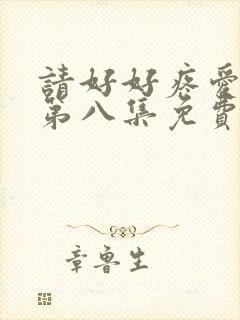 請好好疼愛
第八集免費
章魯生